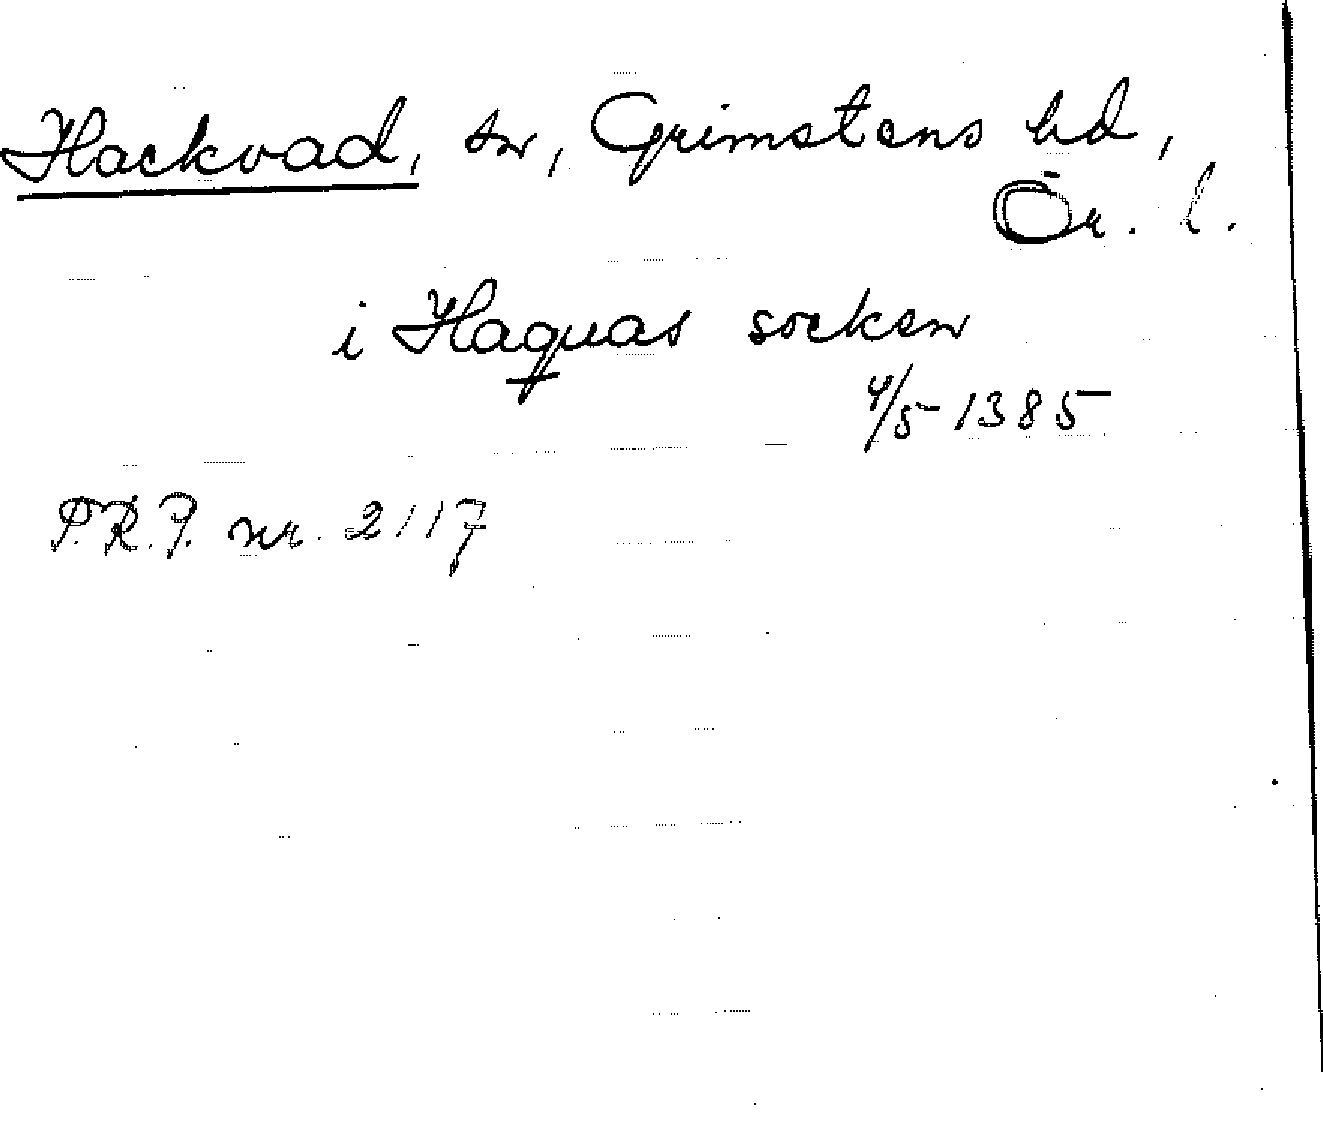 Hackvad, sn, Grimstens hd,
Ör. l.
i Haquas socken
4/5 1385
P.R.P. nr. 2117